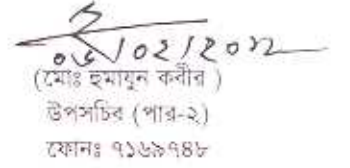 ০৬/০২/২০১২
(মোঃ হুমাযুন কবীর )
উপসচিব (পার-২)
ফোনঃ ৭১৬৯৭৪৮